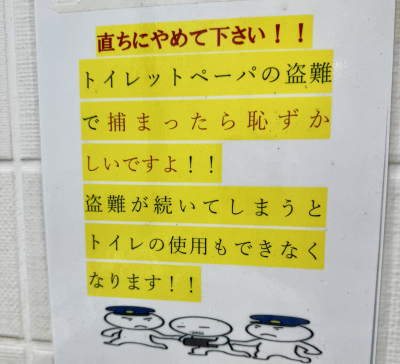 直ちにやめて下さい！！
トイレットペーパの盗難
で捕まったら恥ずか
しいですよ！！
盗難が続いてしまうと
トイレの使用もできなく
なります！！